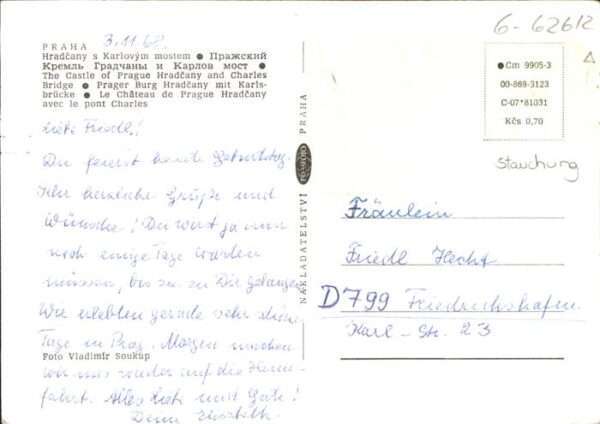 PRAHA 3.11.68.
Hradčany s Karlovým mostem ● Пражский
Кремль Градчаны и Карлов мост ●
The Castle of Prague Hradčany and Charles
Bridge ● Prager Burg Hradčany mit Karls-
brücke ● Le Château de Prague Hradčany
avec le pont Charles
Liebe Friedl!
Du feierst heute Geburtstag.
herzliche Grüße und
Wünsche! Du wirst ja nun
noch einige Tage warten
müssen, bis sie zu Dir gelangen.
Wir erlebten gerade sehr schöne
Tage in Prag. Morgen machen
wir uns wieder auf die Heim-
fahrt. Alles Liebe und Gute!
Foto Vladimír Soukup
NAKLADATELSTVÍ PRAHA
6-62612
● Cm 9905-3
00-869-3123
C-07*81031
Kčs 0,70
Stauchung
Fräulein
Friedl Hecht
D799 Friedrichshafen
Karl-Str. 23